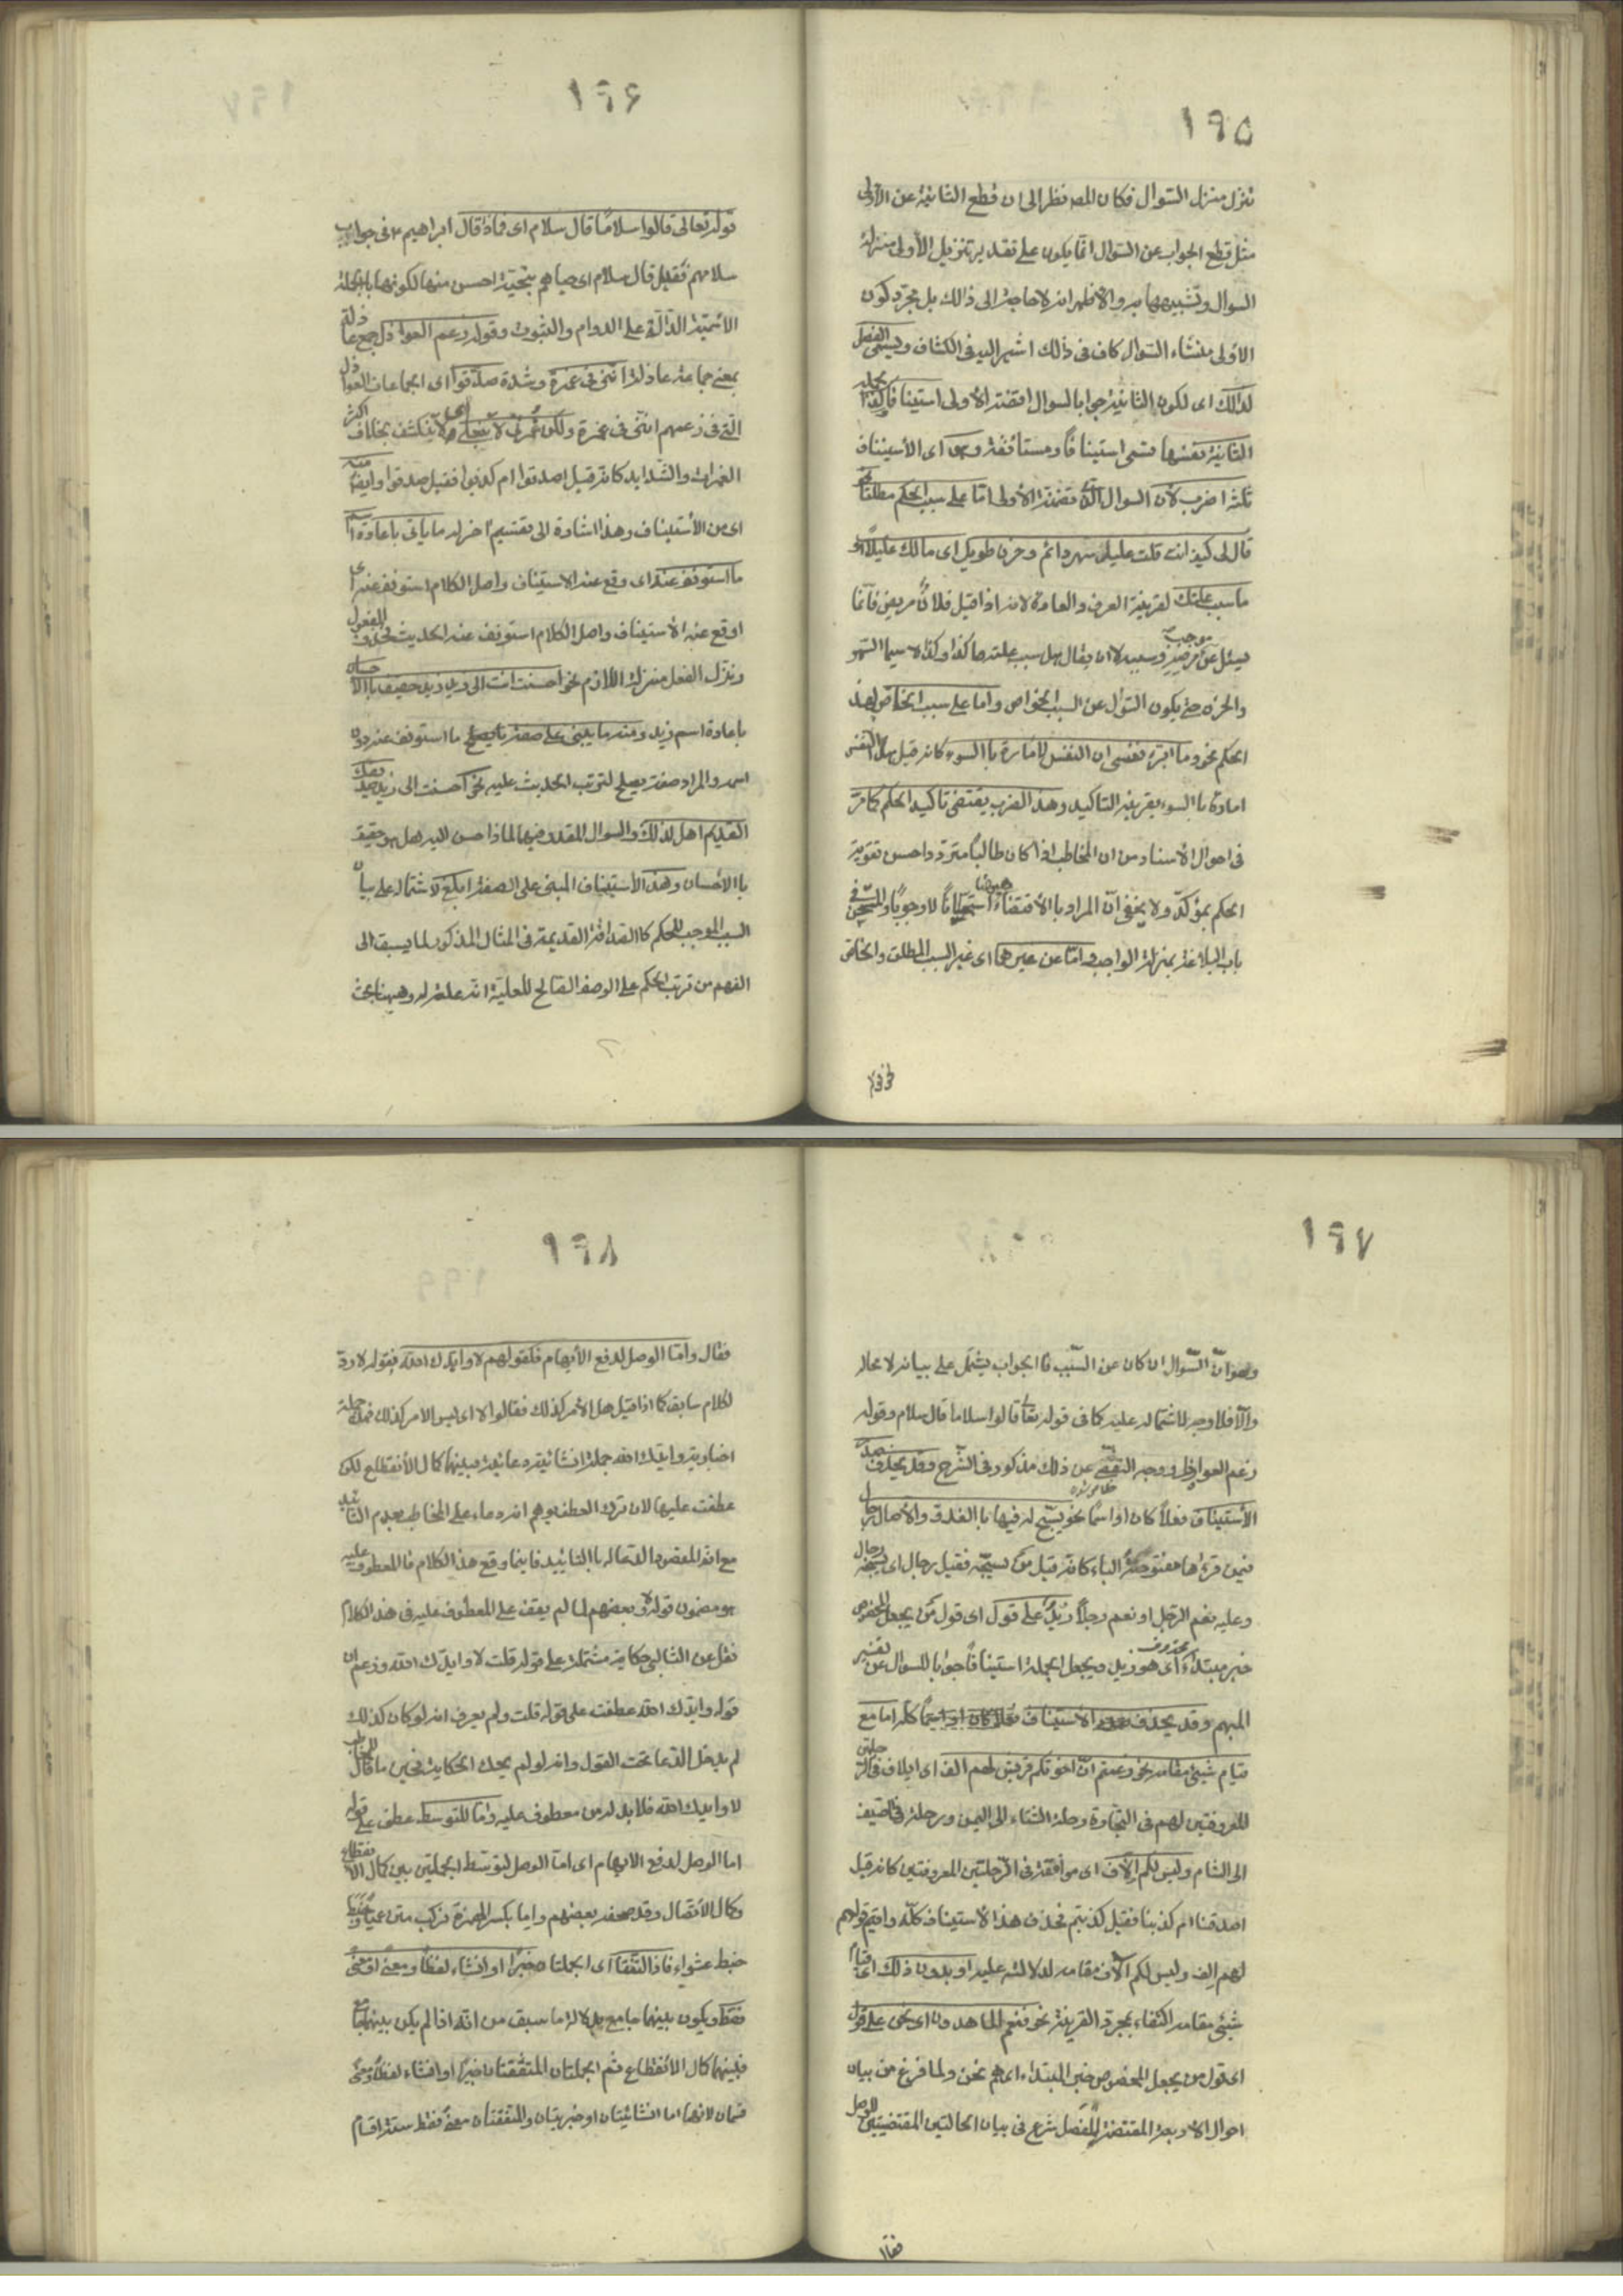 ١٩٥
تنزل منزل السؤال فكان المصـ نظر الى ان قطع الثانية عن الأولى
مثل قطع الجواب عن السؤال انما يكون على تقدير تنزيل الأولى منزلة
السؤال وتشبيهها به والأظهر انه لا حاجة الى ذالك بل مجرد كون
الاولى منشاء السؤال كاف فى ذالك اشير اليه فى الكشاف ويسمى الفصل
لذالك اى لكون الثانية جوابا لسوال اقتضته الأولى استينافا وكذا الجملة
الثانية نفسها تسمى استينافًا ومستأنفة وهو اى الأستيناف
ثلثة اضرب لأن السوال الذى تضمنته الأولى امّا على سبب الحكم مطلقًا نحو
قال لى كيف انت قلت عليل سهر دائم وحزن طويل اى مالك عليلًا او
ما سبب علتك لقرينة العرف والعادة لانه اذا قيل فلان مريض فانما
يسئل عن مرضه وسببه لا ان يقال هل سبب علته كذا وكذا لا سيما السهر
موجب
والحزن حتى يكون السؤال عن السبب الخواص واما على سبب الخاص لهذ
الحكم نحو وما ابرئ نفسى ان النفس لامّارة باالسوء كانه قيل هل النفس
امارة باالسوء بقرينة التاكيد وهذا الضرب يقتضى تاكيد الحكم كما مرّ
فى احوال الأسناد من ان المخاطب اذا كان طالبًا مترددا حسن تقوية
الحكم بمؤكّد ولا يخفى انّ المراد باالأقتضاء استحسانًا لا وجوبًا والمستحسن فى
ههنا
باب البلاغة بمنزلة الواجب وامّا عن غيرهما اى غير السبب المطلق والخاص
نحو قوله
١٩٦
قوله تعالى قالوا سلامًا قال سلام اى فماذا قال ابراهيم ع فى جواب
سلامهم فقيل قال سلام اى حياهم بتحيّة احسن منها لكونها باالجملة
الأسميّة الدّالّة على الدوام والثبوت وقوله زعم العواذل جمع عاذلة
بمعنى جماعة عاذلة انّنى فى غمرة وشدة صدقوا اى الجماعات العواذل
التى فى زعمهم انّنى فى غمرة ولكن غمرتى لا تنجلى اى لا تنكشف بخلاف اكثر
الغمرات والشدايد كانه قيل اصدقوا ام كذبوا فقيل صدقوا وايضًا منه
اى من الأستيناف وهذا اشارة الى تقسيم اخر له ما ياتى باعادة اسم
ما استونف عنه اى وقع عنه الاستيناف واصل الكلام استونف عنه اى
اوقع عنه الأستيناف واصل الكلام استونف عنه الحديث فحذف المفعول
ونزل الفعل منزلة اللازم نحو احسنت انت الى زيد زيد حقيق باالأحسان
باعادة اسم زيد ومنه ما يبنى على صفته ما يصلح ما استونف عنه دون
اسمه والمراد صفة يصلح لترتب الحديث عليه نحو احسنت الى زيد صديقك
القديم اهل لذلك والسوال المقدر فيهما لماذا احسن اليه هل هو حقيق
باالأحسان وهذا الأستيناف المبنى على الصفة ابلغ لاشتماله على بيان
السبب الموجب للحكم كاالصداقة القديمة فى المثال المذكور لما يسبق الى
الفهم من ترتب الحكم على الوصف الصالح للعليّة انه علة له وههنا بحث
١٩٧
وهو انّ السّوال ان كان عن السّبب فاالجواب يشتمل على بيانه لا محالة
والّا فلا وجه لاشتماله عليه كما فى قوله تعا قالوا سلاما قال سلام وقوله
زعم العواذل ووجه التفصّى عن ذلك مذكور فى الشرح وقد يحذف صدر
الأستيناف فعلًا كان او اسمًا نحو يسبّح له فيها باالغدو والآصال رجال
فيمن قرءها مفتوحة الباء كانه قيل من يسبّحه فقيل رجال اى يسبحه رجال
وعليه نعم الرجل او نعم رجلًا زيدٌ على قول اى قول من يجعل المخصوص
خبر مبتداء اى هو زيد ويجعل الجملة استينافًا جوابا للسوال عن تفسير
محذوف
المبهم وقد يحذف الاستيناف كله اما مع
قيام شيئ مقامه نحو زعمتم انّ اخوتكم قريش لهم الف اى ايلاف فى الرحلتين
المعروفتين لهم فى التجارة رحلة الشتاء الى اليمن ورحلة فى الصيف
الى الشام وليس لكم الآف اى موافقة فى الرّحلتين المعروفتين كانه قيل
اصدقنا ام كذبنا فقيل كذبتم فحذف هذا الأستيناف كلّه واقيم قولهم
لهم الف وليس لكم الآف مقامه لدلالته عليه او بدون ذلك اى قيام
شيئ مقامه اكتفاء بمجرد القرينة نحو فنعم الماهدون اى نحن على قول
اى قول من يجعل المخصوص خبر المبتداء اى هم نحن ولما فرغ من بيان
احوال الأربعة المقتضية للفصل شرع فى بيان الحالتين المقتضيتين للوصل
فقال
١٩٨
فقال وامّا الوصل لدفع الأيهام فكقولهم لا وايّدك الله فقوله لا ردّ
لكلام سابق كما اذا قيل هل الأمر كذلك فقالوا لا اى ليس الامر كذلك فهذه جملة
اخبارية وايدك الله جملة انشائية دعائية فبينهما كمال الأنقطاع لكن
عطفت عليها لان ترك العطف يوهم انه دعاء على المخاطب بعدم التائيد
مع انّ المقصود الدعاء له باالتائيد فاينما وقع هذا الكلام فاالمعطوف عليه
هو مضمون قوله لا وبعضهم لما لم يقف على المعطوف عليه فى هذا الكلام
نقل عن الثعالبى حكاية مشتملة على قوله قلت لا وايدّك الله وزعم ان
قوله وايدك الله عطفت على قوله قلت ولم يعرف انه لو كان كذلك
لم يدخل الدعا تحت القول وانه لو لم يحك الحكاية فحين ما قال للمخاطب
لا وايدك الله فلا بد له من معطوف عليه وامّا للتوسط عطف على قوله
اما الوصل لدفع الايهام اى امّا الوصل لتوسّط الجملتين بين كمال الانقطاع
وكمال الأتصال وقد صحفه بعضهم واما بكسر الهمزة فركب متن عمياء وخبط
خبط عشواء فاذا اتّفقا اى الجملتا خبرًا او انشاء لفظًا ومعنى او معنى
فقط ويكون بينهما جامع بدلالة ما سبق من انّه اذا لم يكن بينهما جامع
فبينهما كمال الانقطاع ثم الجملتان المتفقتان خبرًا او انشاء لفظًا ومعنى
قسمان لانهما اما انشائيتان او خبريتان والمتفقتان معنى فقط ستة اقسام